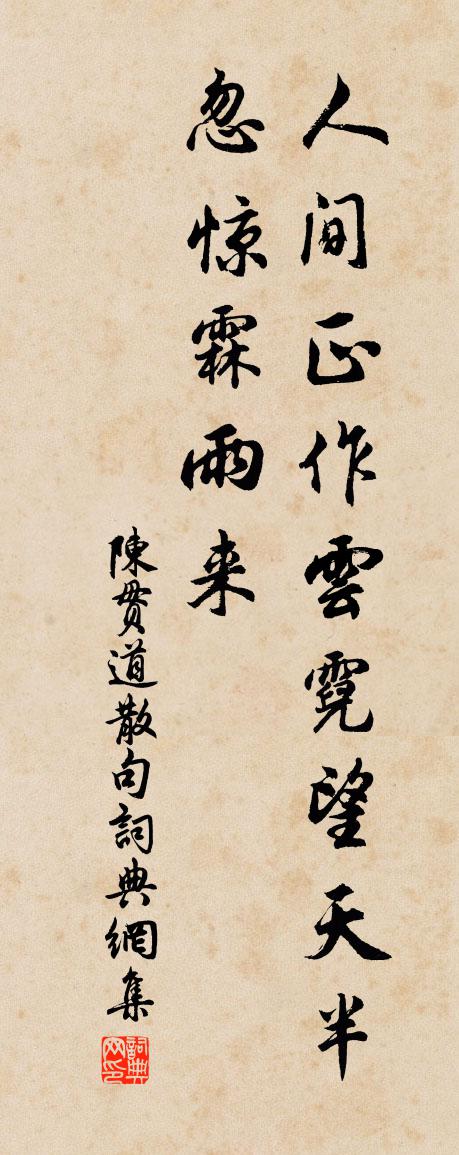 人间正作雲霓望天半
忽惊霖雨来
陳贯道散句詞典網集
詞典网印